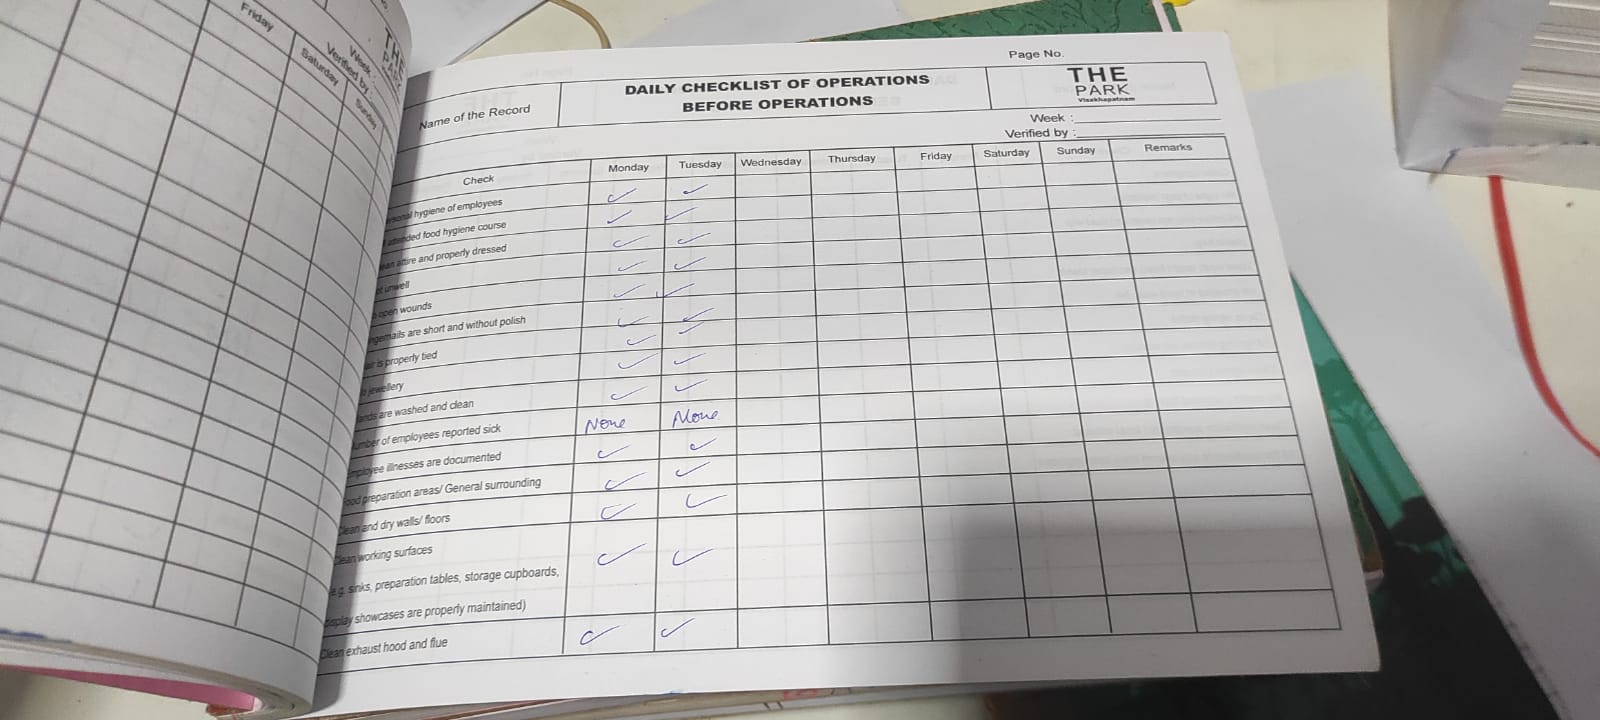 Friday
Saturday
Sunday
Week :
Verified by :
THE
Page No.
Name of the Record
DAILY CHECKLIST OF OPERATIONS
BEFORE OPERATIONS
THE
PARK
Visakhapatnam
Week :
Verified by :
Check Monday Tuesday Wednesday Thursday Friday Saturday Sunday Remarks
hygiene of employees ✓ ✓
food hygiene course ✓ ✓
attire and properly dressed ✓ ✓
unwell ✓ ✓
open wounds ✓ ✓
are short and without polish ✓ ✓
is properly tied ✓ ✓
jewellery ✓ ✓
are washed and clean ✓ ✓
of employees reported sick None None
illnesses are documented ✓ ✓
preparation areas/ General surrounding ✓ ✓
and dry walls/ floors ✓ ✓
Clean working surfaces ✓ ✓
e.g. sinks, preparation tables, storage cupboards,
display showcases are properly maintained)
Clean exhaust hood and flue ✓ ✓